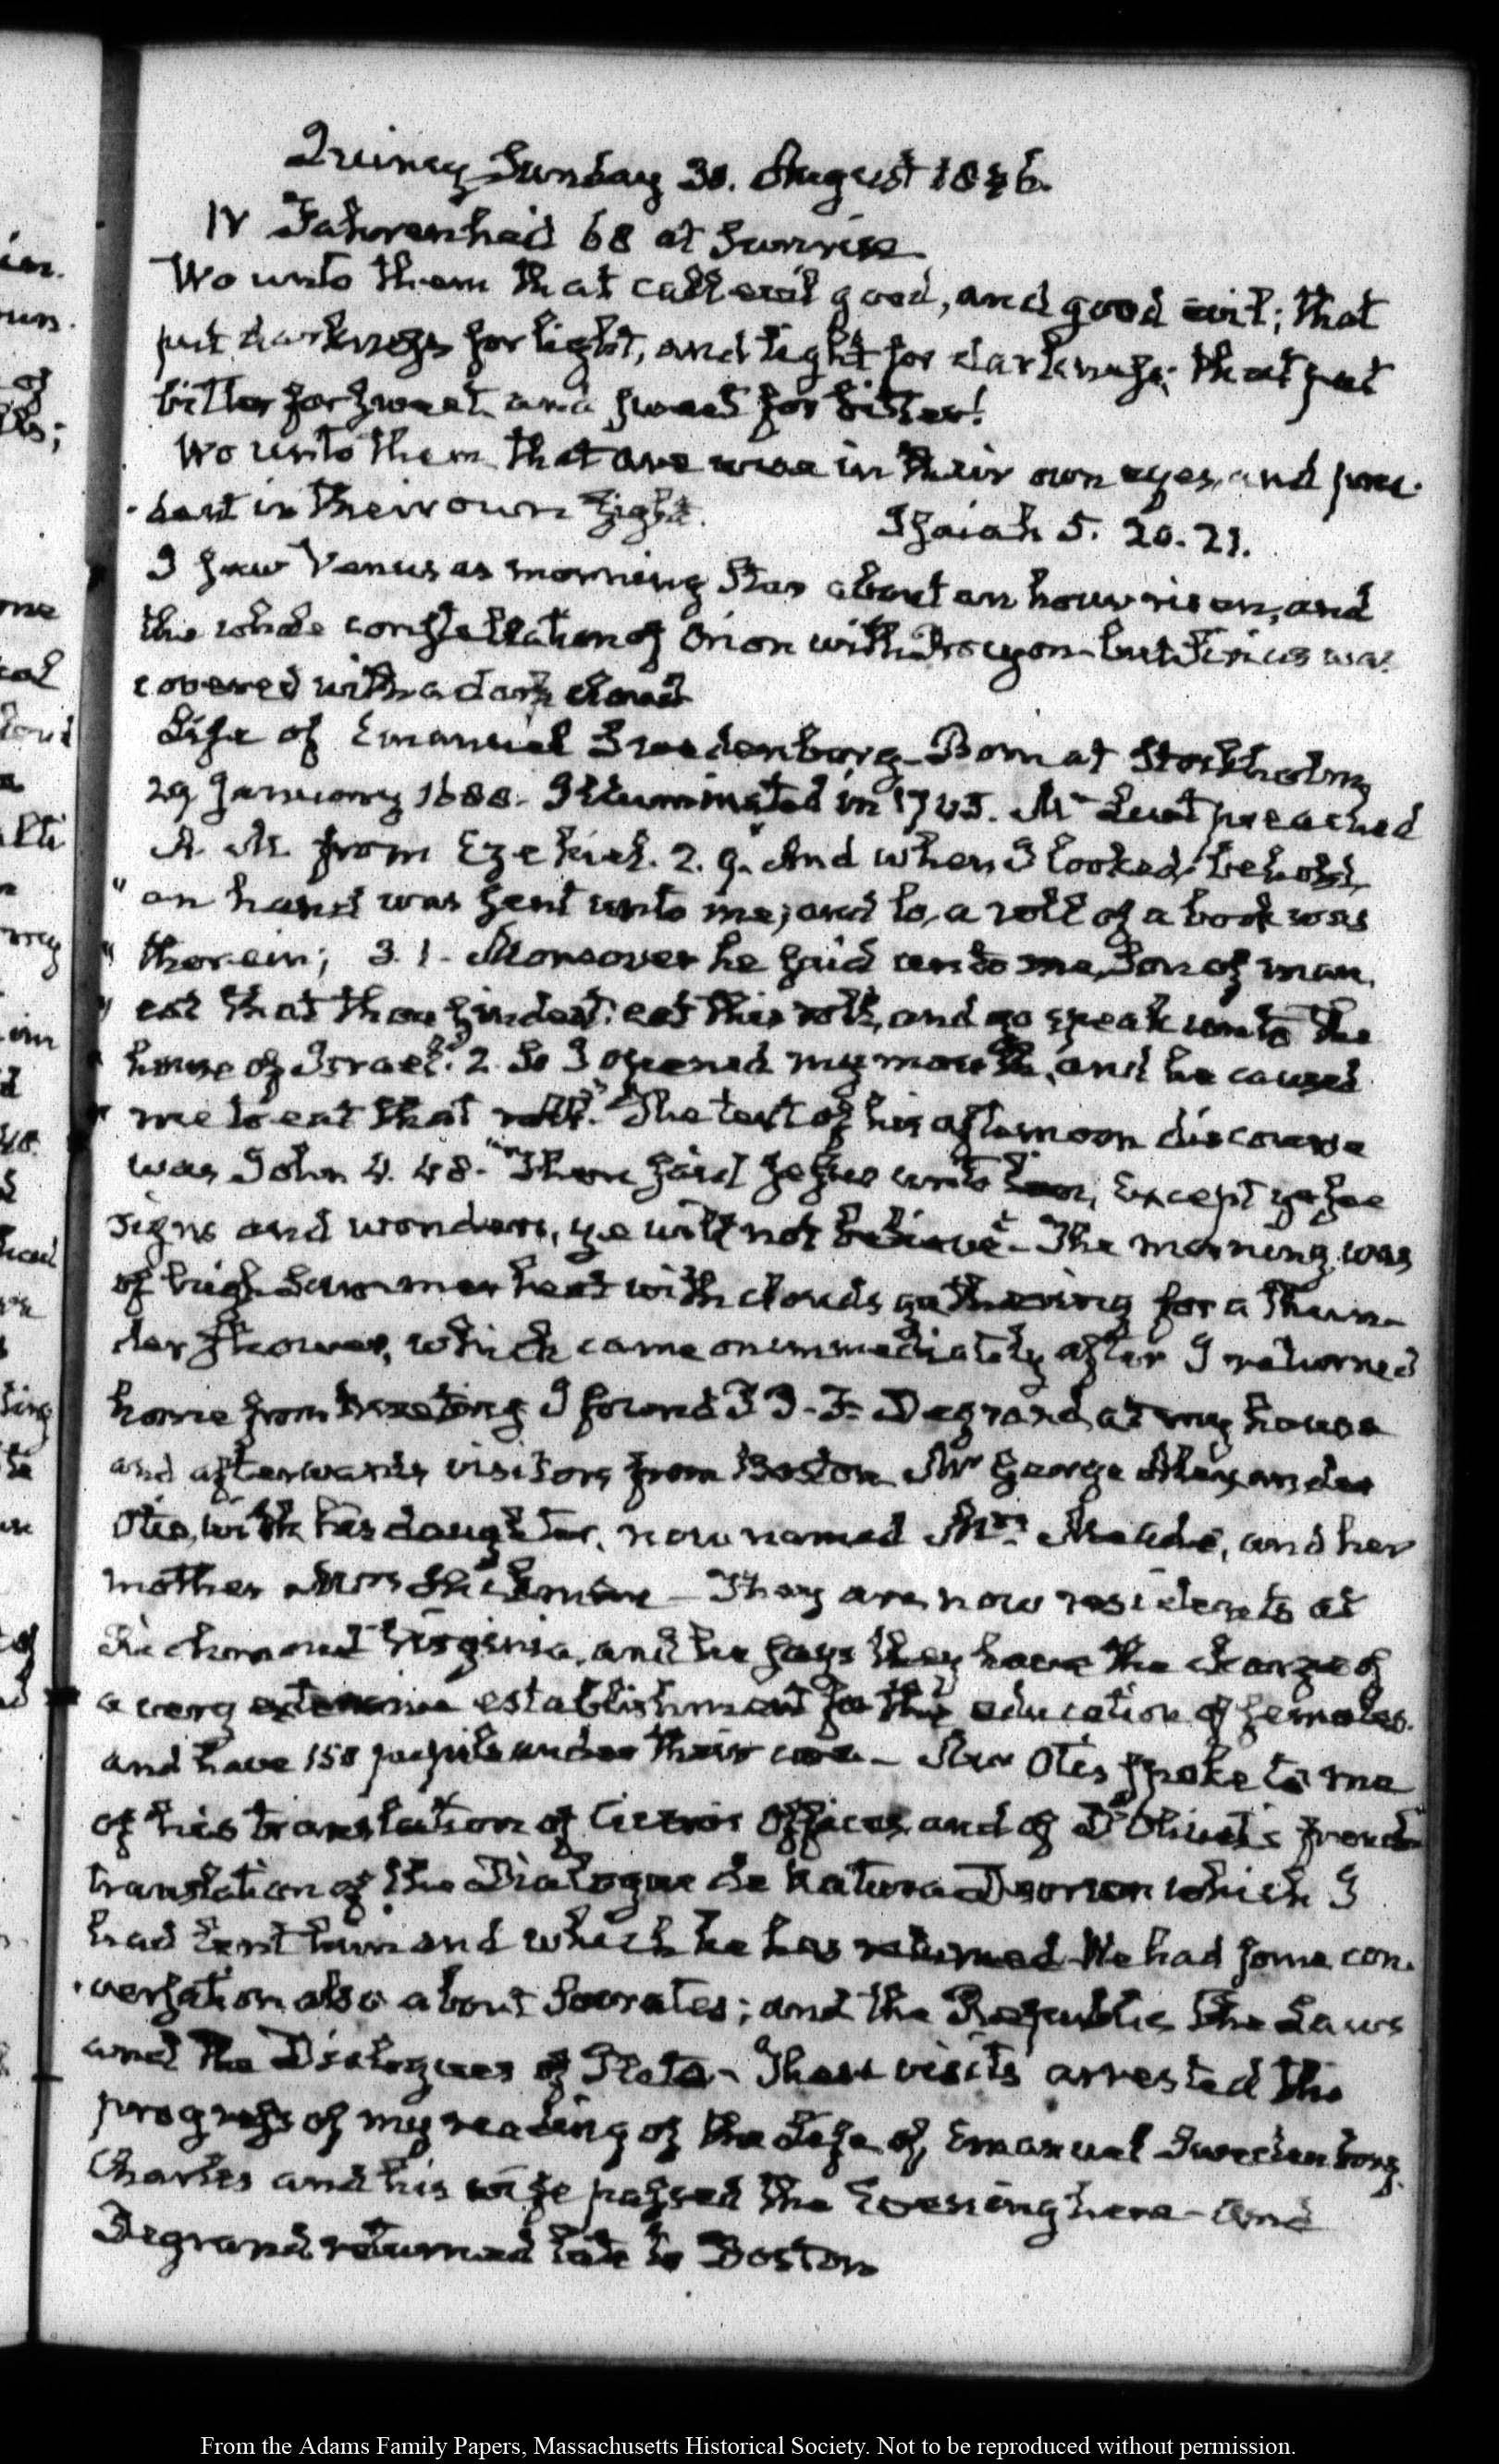 Quincy Sunday 30. August 1846.
IV Fahrenheid 68 at Sunrise
Wo unto them that call evil good, and good evil; that
put darkness for light, and light for darkness; that put
bitter for sweet and sweet for bitter!
Wo unto them that are wise in their own eyes, and pru-
-dent in their own sight. Isaiah 5. 20. 21.
I saw Venus as morning Star about an hour risen, and
the whole constellation of Orion with Procyon but Sirius was
covered with a dark cloud
Life of Emanuel Swedenborg— Born at Stockholm
29 January 1688. Illuminated in 1743. Mr Lunt preached
A. M. from Ezekiel. 2. 9. And when I looked, behold,
" an hand was sent unto me; and lo, a roll of a book was
" therein; 3. 1. Moreover he said unto me, Son of man,
" eat that thou findest: eat this roll, and go speak unto the
" house of Israel." 2. So I opened my mouth, and he caused
" me to eat that roll." The text of his afternoon discourse
was John 4. 48. "Then said Jesus unto him, Except ye see
signs and wonders, ye will not believe— The morning was
of high Summer heat with clouds gathering for a Thun-
der shower, which came on immediately after I returned
home from meeting I found P. P. F. Degrand, at my house
and afterwards visitors from Boston Mr George Alexander
Otis, with his daughter, now named Mrs and her
mother Mrs — They are now residents at
Richmond Virginia, and he says they have the charge of
a very extensive establishment for the education of females.
and have 150 pupils under their care— Mr Otis spoke to me
of his translation of Cicero's Offices, and of D'Olivet's french
translation of the Dialogue de Natura Deorum which I
had lent him and which he has returned We had some con-
-versation also about Socrates; and the Republic, the Laws
and the Dialogues of Plato— These visits arrested the
progress of my reading of the Life of Emanuel Swedenborg.
Charles and his wife passed the Evening here— and
Degrand returned late to Boston
From the Adams Family Papers, Massachusetts Historical Society. Not to be reproduced without permission.